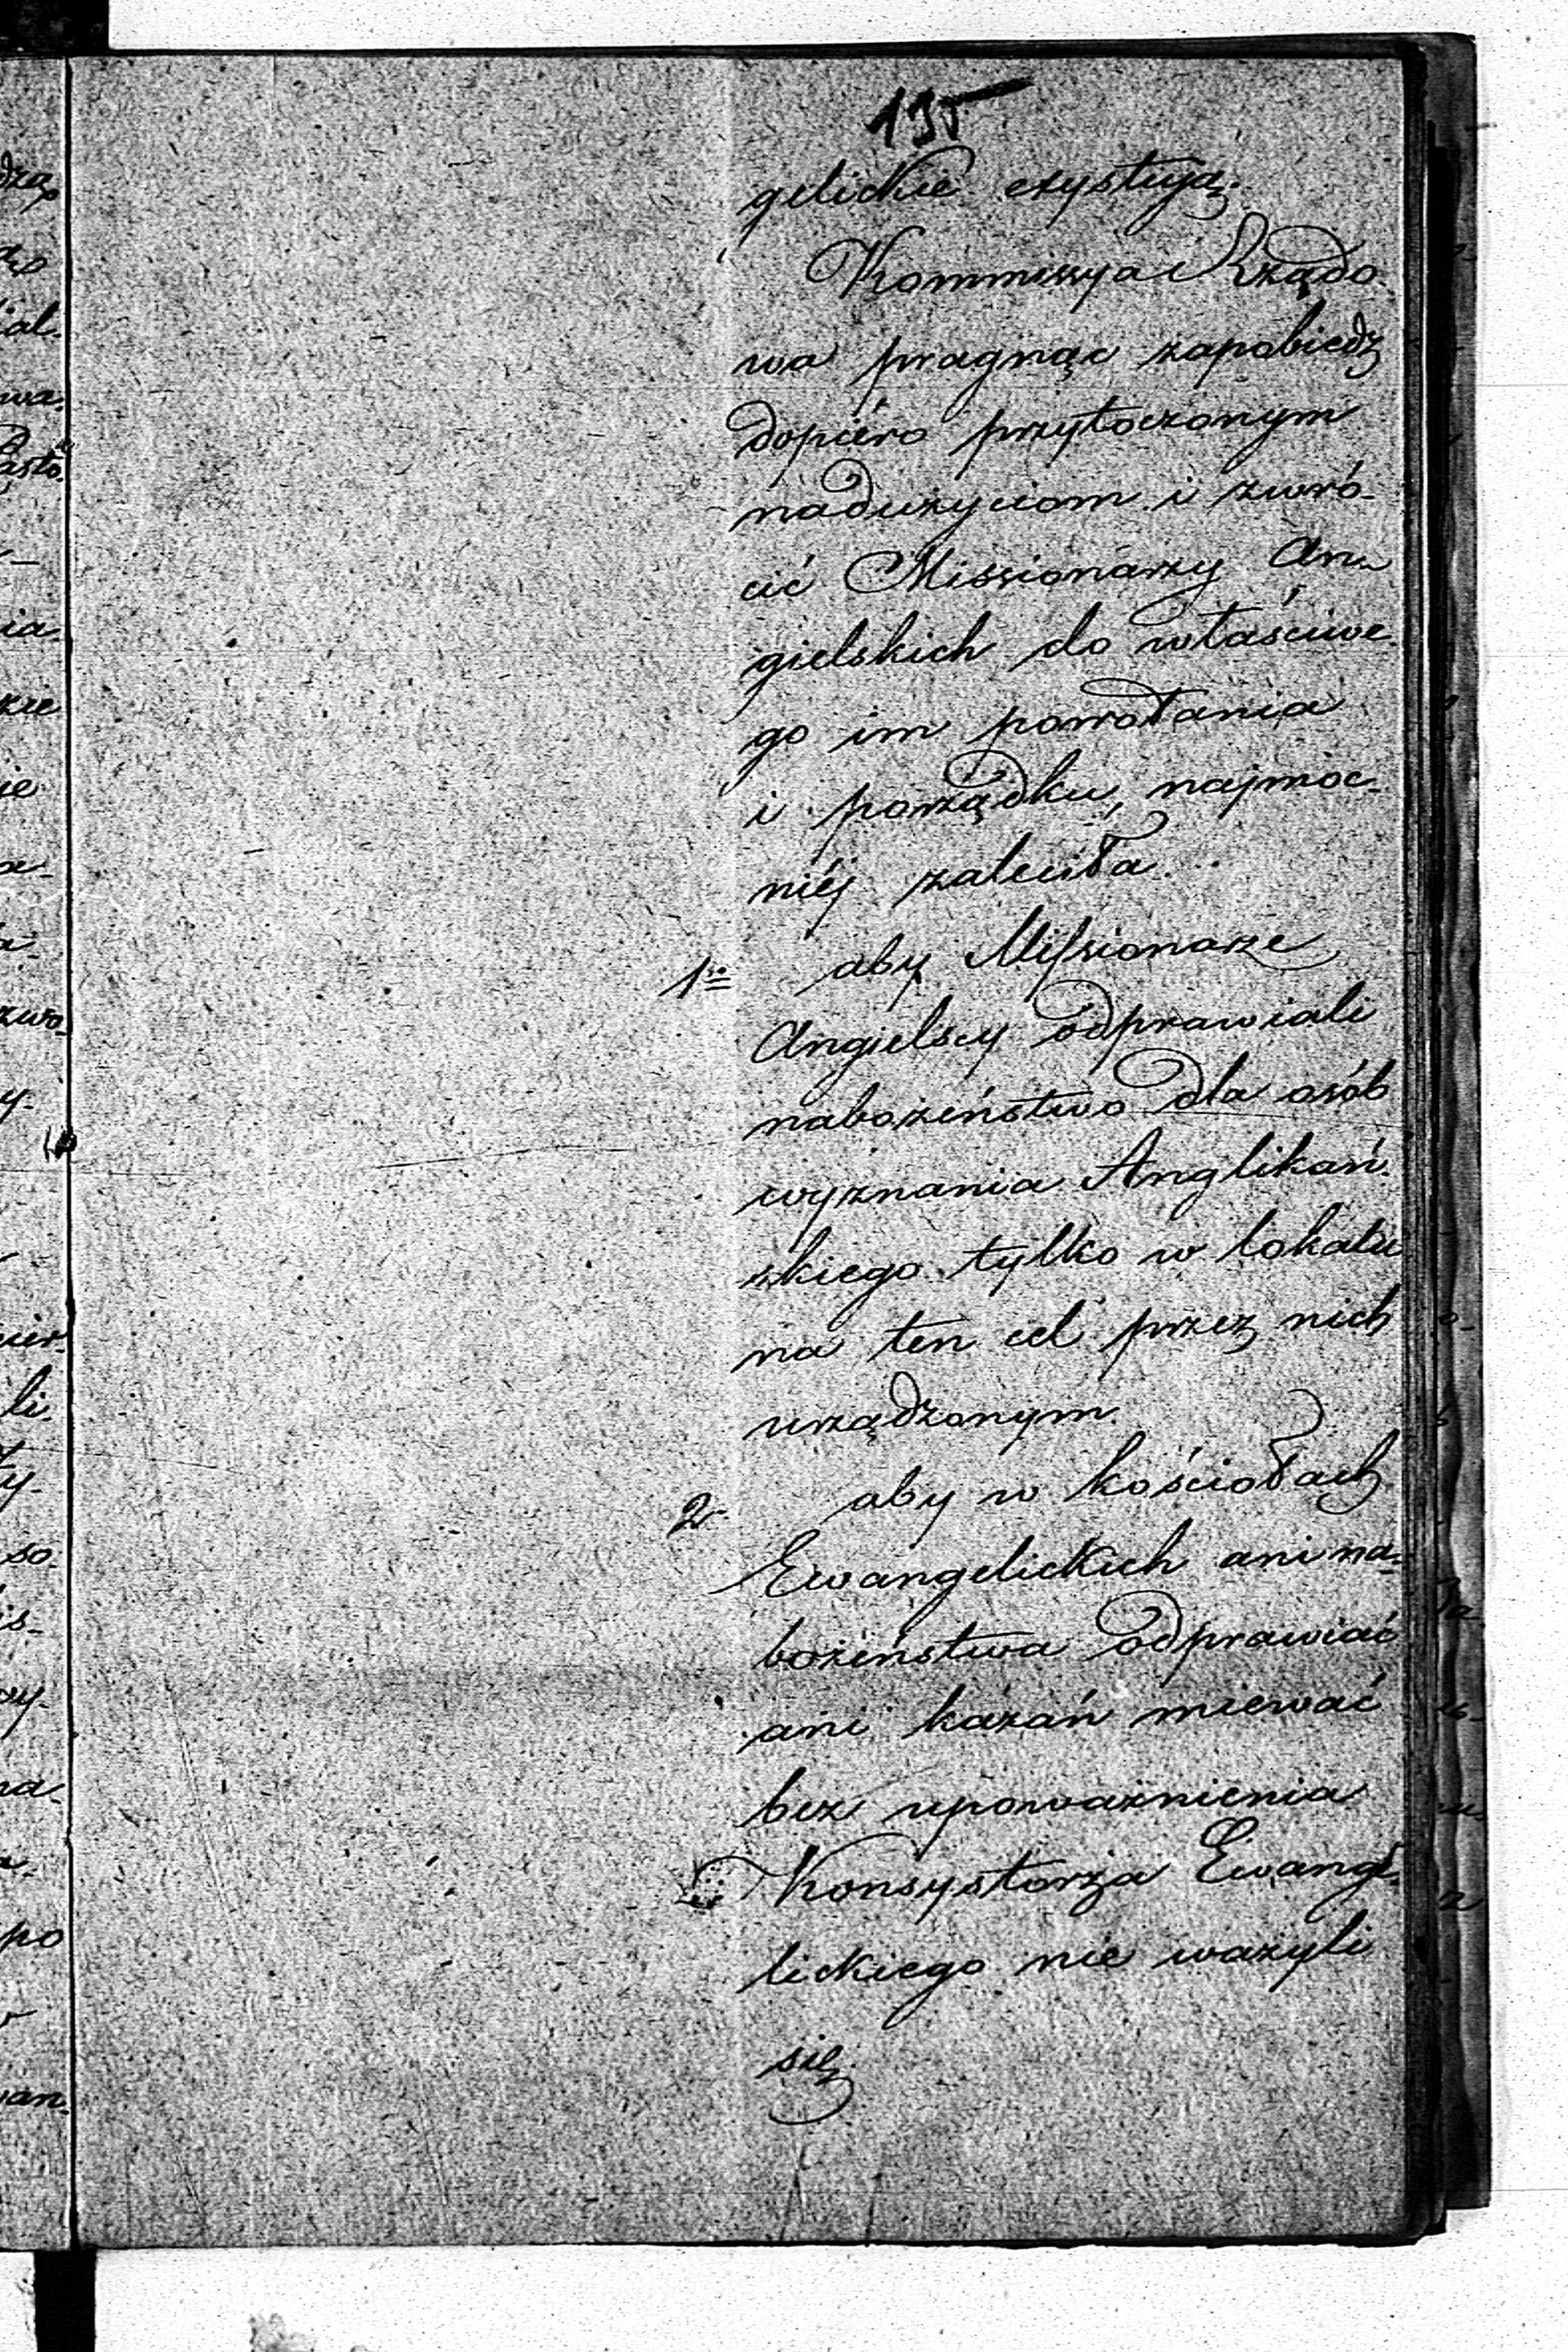 135
gelickie exystują.
Kommissya Rządo-
wa pragnąc zapobiedz
dopiéro przytoczonym
nadużyciom i zwró-
cić Missionarzy An-
gielskich do właściwe-
go im powołania
i porządku, najmoc-
niéj zaleciła.
1o aby Missionarze
Angielscy odprawiali
nabożeństwo dla osób
wyznania Anglikań-
skiego tylko w lokalu
na ten cel przez nich
urządzonym.
2o aby w kościołach
Ewangelickich ani na-
bożeństwa odprawiać
ani kazań miewać
bez upoważnienia
Konsystorza Ewange-
lickiego nie ważyli
się.